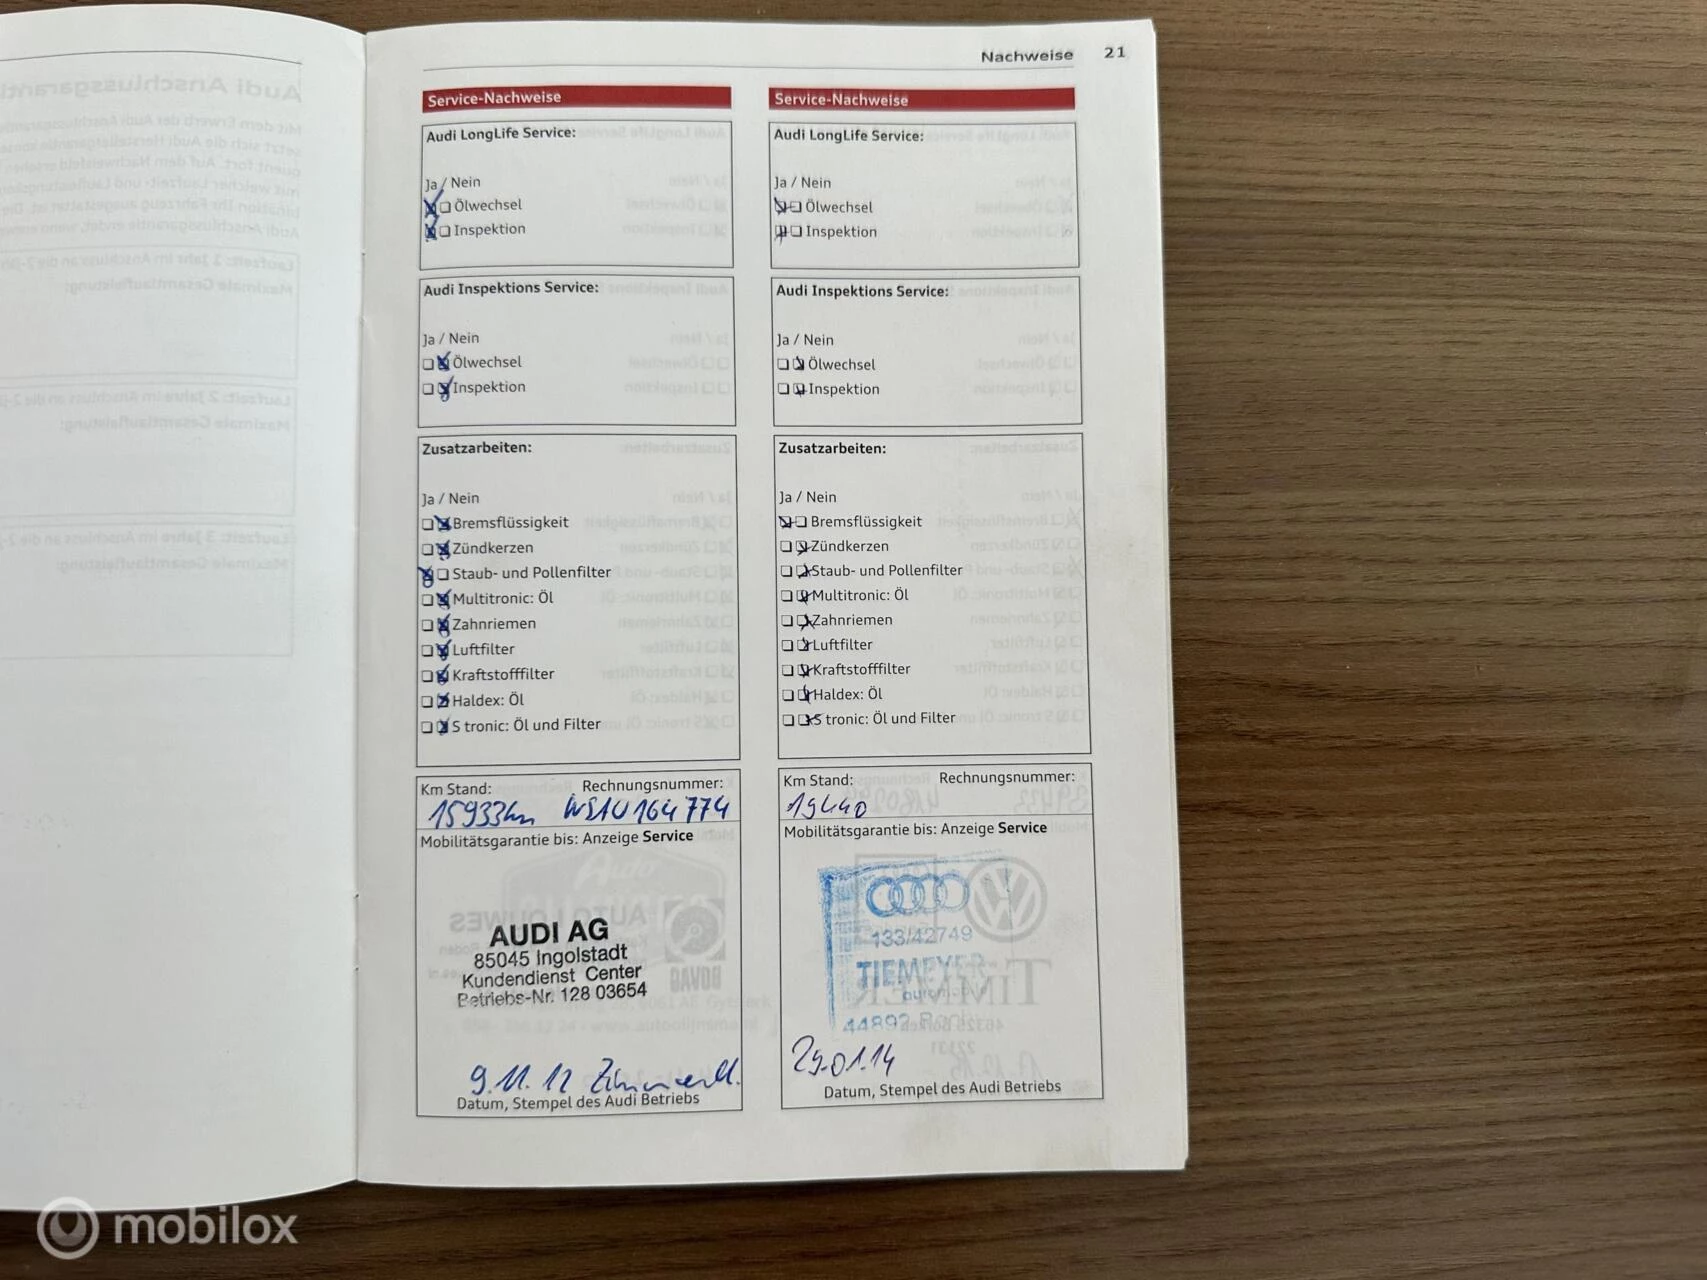 Nachweise 21
Service-Nachweise
Audi LongLife Service:
Ja / Nein
Ölwechsel
Inspektion
Audi Inspektions Service:
Ja / Nein
Ölwechsel
Inspektion
Zusatzarbeiten:
Ja / Nein
Bremsflüssigkeit
Zündkerzen
Staub- und Pollenfilter
Multitronic: Öl
Zahnriemen
Luftfilter
Kraftstofffilter
Haldex: Öl
S tronic: Öl und Filter
Km Stand: Rechnungsnummer:
15933km WS1U164774
Mobilitätsgarantie bis: Anzeige Service
AUDI AG
85045 Ingolstadt
Kundendienst Center
Betriebs-Nr. 128 03654
9.11.12
Datum, Stempel des Audi Betriebs
Service-Nachweise
Audi LongLife Service:
Ja / Nein
Ölwechsel
Inspektion
Audi Inspektions Service:
Ja / Nein
Ölwechsel
Inspektion
Zusatzarbeiten:
Ja / Nein
Bremsflüssigkeit
Zündkerzen
Staub- und Pollenfilter
Multitronic: Öl
Zahnriemen
Luftfilter
Kraftstofffilter
Haldex: Öl
S tronic: Öl und Filter
Km Stand: Rechnungsnummer:
19440
Mobilitätsgarantie bis: Anzeige Service
133/42749
TIEMEYER
44892
29.01.14
Datum, Stempel des Audi Betriebs
mobilox